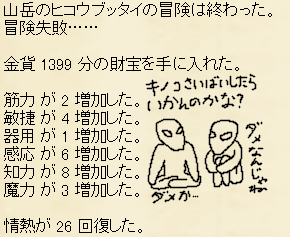 山岳のヒコウブッタイの冒険は終わった。
冒険失敗……
金貨 1399 分の財宝を手に入れた。
筋力 が 2 増加した。
敏捷 が 4 増加した。
器用 が 1 増加した。
感応 が 6 増加した。
知力 が 8 増加した。
魔力 が 3 増加した。
情熱が 26 回復した。
キノコさいばいしたら
いかんのかな?
ダメなんじゃね
ダメか…